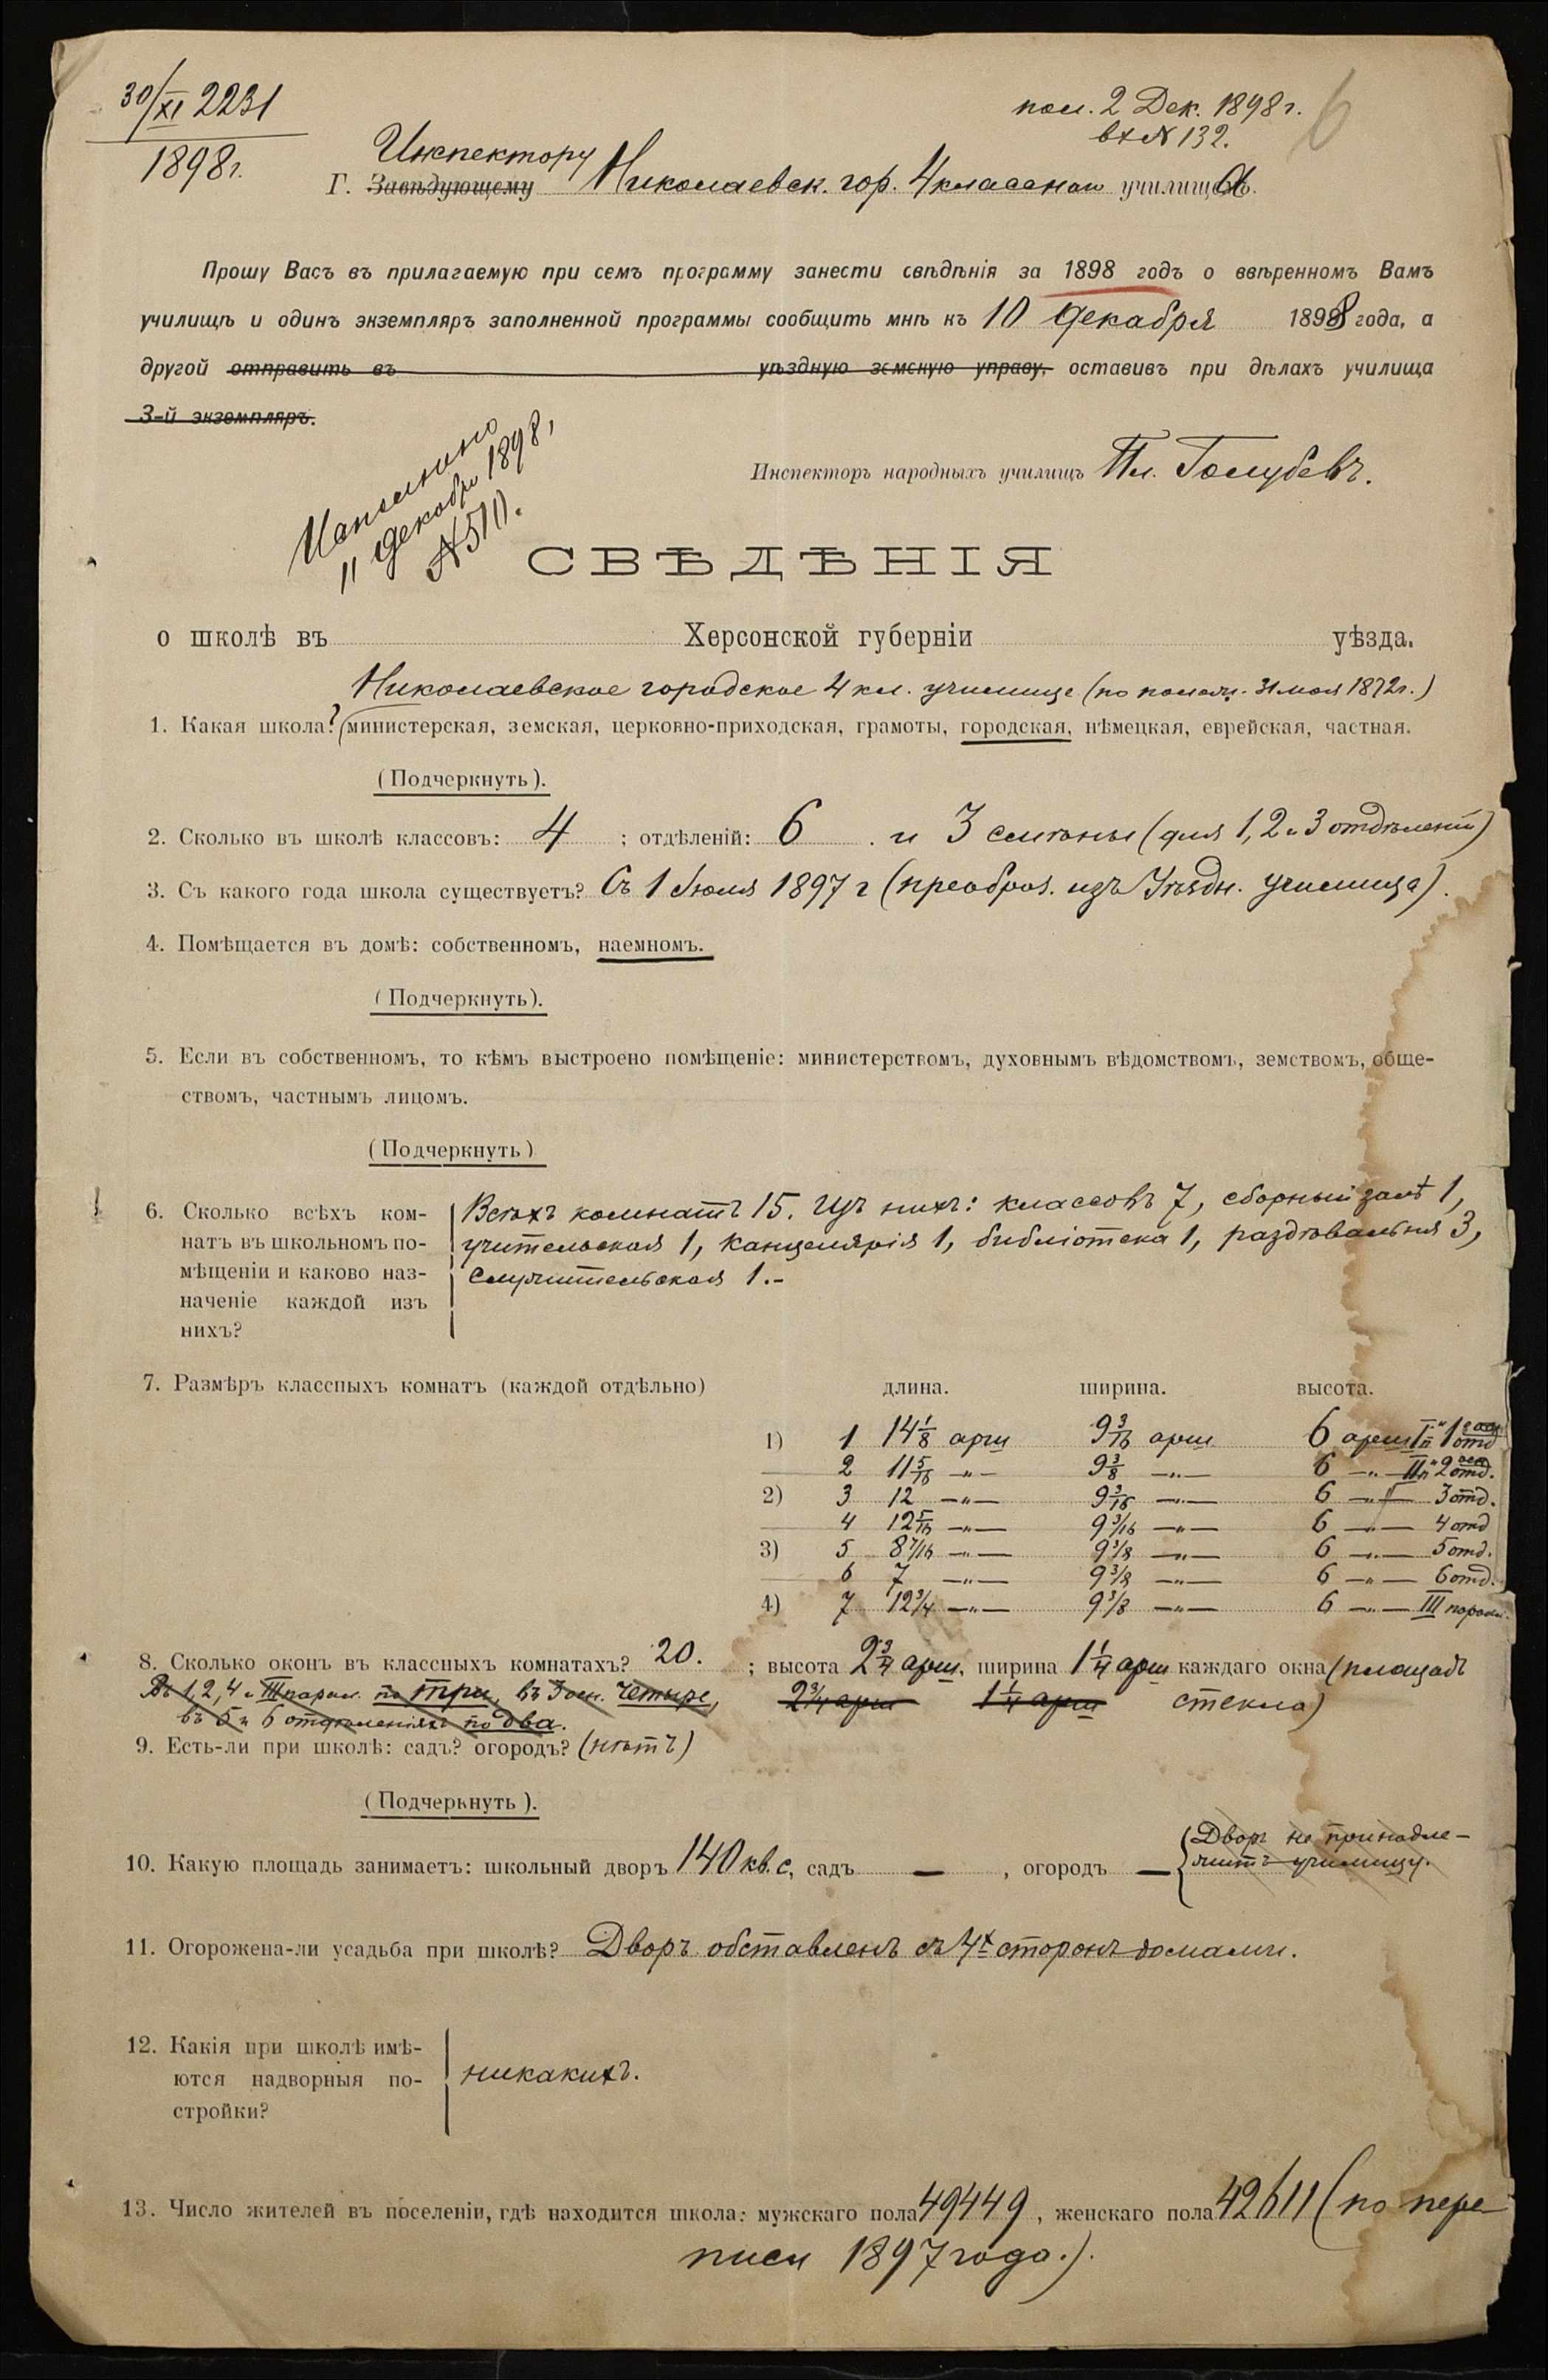 30/XI 2231
1898 г.
пол. 2 Дек. 1898 г.
вх № 132.
6
Инспектору
Г. Завѣдующему Николаевск. гор. 4 классном училища.
Прошу Васъ въ прилагаемую при семъ программу занести свѣдѣнія за 1898 годъ о ввѣренномъ Вамъ
училищѣ и одинъ экземпляръ заполненной программы сообщить мнѣ къ 10 декабря 1898 года, а
другой отправить въ уѣздную земскую управу, оставивъ при дѣлахъ училища
3-й экземпляръ.
Исполнено
11 декабр 1898,
№ 510.
Инспекторъ народныхъ училищъ Пл. Голубевъ.
СВѢДѢНІЯ
о школѣ въ Херсонской губерніи уѣзда.
Николаевское городское 4 кл. училище (по полож. 31 мая 1872 г.)
1. Какая школа? (министерская, земская, церковно-приходская, грамоты, городская, нѣмецкая, еврейская, частная.
(Подчеркнуть).
2. Сколько въ школѣ классовъ: 4 ; отдѣленій: 6 . и 3 смѣны (для 1, 2 и 3 отдѣленій)
3. Съ какого года школа существуетъ? Съ 1 Іюля 1897 г (преобраз. изъ Уѣздн. училища).
4. Помѣщается въ домѣ: собственномъ, наемномъ.
(Подчеркнуть).
5. Если въ собственномъ, то кѣмъ выстроено помѣщеніе: министерствомъ, духовнымъ вѣдомствомъ, земствомъ, обще-
ствомъ, частнымъ лицомъ.
(Подчеркнуть)
6. Сколько всѣхъ ком- Всѣхъ комнатъ 15. Изъ нихъ: классовъ 7, сборный залъ 1,
натъ въ школьномъ по- учительская 1, канцелярія 1, библіотека 1, раздѣвальня 3,
мѣщеніи и каково наз- служительская 1.-
наченіе каждой изъ
нихъ?
7. Размѣръ классныхъ комнатъ (каждой отдѣльно) длина. ширина. высота.
1) 1 14 1/8 арш 9 3/16 арш 6 арш 1 отд
2 11 5/16 —"— 9 3/8 —"— 6 —"— 2 отд.
2) 3 12 —"— 9 3/16 —"— 6 —"— 3 отд.
4 12 5/16 —"— 9 3/16 —"— 6 —"— 4 отд
3) 5 8 7/16 —"— 9 3/8 —"— 6 —"— 5 отд.
6 7 —"— 9 3/8 —"— 6 —"— 6 отд.
4) 7 12 3/4 —"— 9 3/8 —"— 6 —"— III парал.
8. Сколько оконъ въ классныхъ комнатахъ? 20. ; высота 2 3/4 арш, ширина 1 1/4 арш каждаго окна (площадь
Въ 1, 2, 4 и III парал. по три, въ 3 осн. четыре, 2 3/4 арш 1 1/4 арш стекла)
въ 5 и 6 отдѣленіяхъ по два.
9. Есть-ли при школѣ: садъ? огородъ? (нѣтъ)
(Подчеркнуть).
10. Какую площадь занимаетъ: школьный дворъ 140 кв. с, садъ — , огородъ — {Дворъ не принадле-
житъ училищу.
11. Огорожена-ли усадьба при школѣ? Дворъ обставленъ съ 4х сторонъ домами.
12. Какія при школѣ имѣ-
ются надворныя по- никакихъ.
стройки?
13. Число жителей въ поселеніи, гдѣ находится школа: мужскаго пола 49449, женскаго пола 42611 (по пере-
писи 1897 года.).